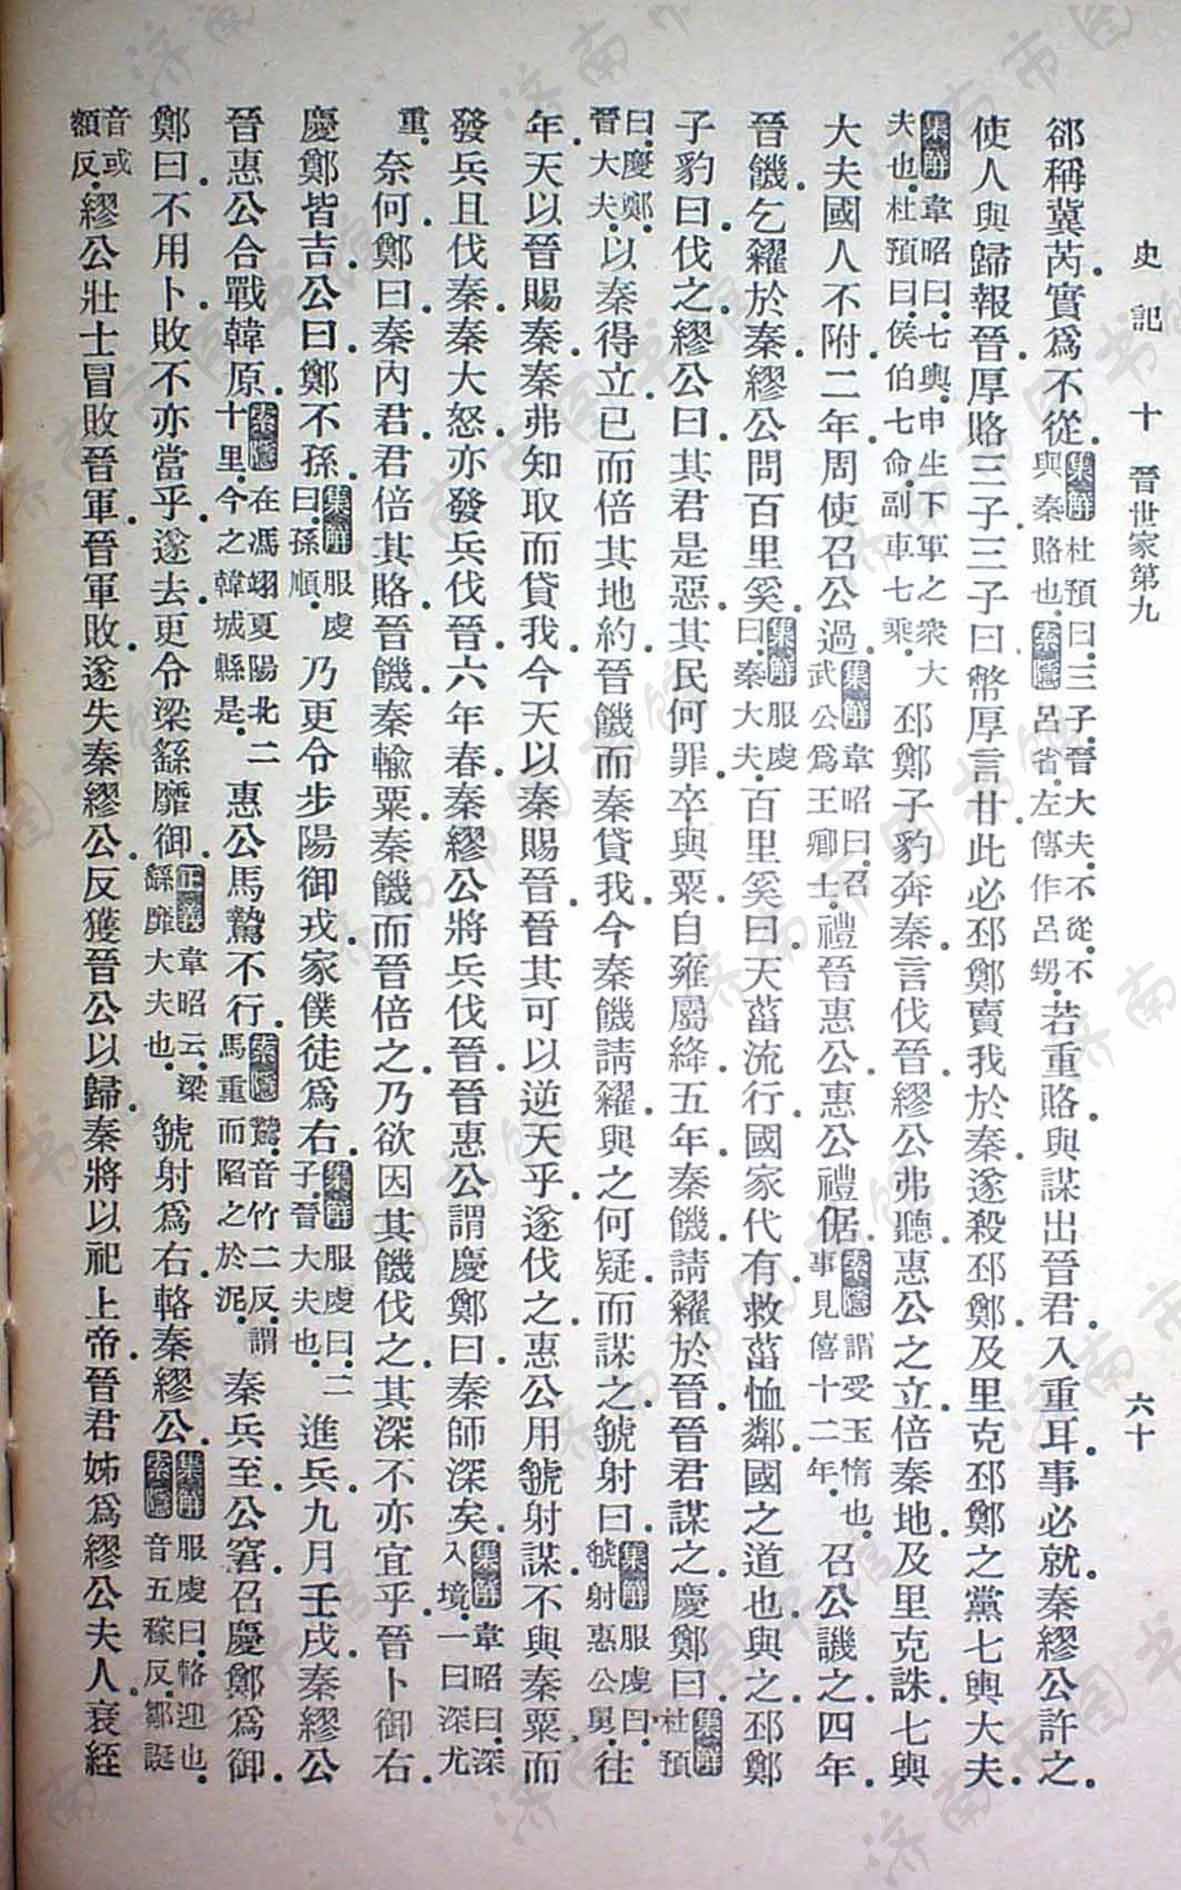 史記 十 晉世家第九 六十
郤稱冀芮實爲不從集解杜預曰三子晉大夫不從不與秦賂也索隱呂省左傳作呂甥若重賂與謀出晉君入重耳事必就秦繆公許之
使人與歸報晉厚賂三子三子曰幣厚言甘此必邳鄭賣我於秦遂殺邳鄭及里克邳鄭之黨七輿大夫
集解韋昭曰七輿申生下軍之衆大夫也杜預曰侯伯七命副車七乘邳鄭子豹奔秦言伐晉繆公弗聽惠公之立倍秦地及里克誅七輿
大夫國人不附二年周使召公過集解韋昭曰召武公爲王卿士禮晉惠公惠公禮倨索隱謂受玉惰也事見僖十二年召公譏之四年
晉饑乞糴於秦繆公問百里奚集解服虔曰秦大夫百里奚曰天菑流行國家代有救菑恤鄰國之道也與之邳鄭
子豹曰伐之繆公曰其君是惡其民何罪卒與粟自雍屬絳五年秦饑請糴於晉晉君謀之慶鄭曰集解杜預
曰慶鄭晉大夫以秦得立已而倍其地約晉饑而秦貸我今秦饑請糴與之何疑而謀之虢射曰集解服虔曰虢射惠公舅往
年天以晉賜秦秦弗知取而貸我今天以秦賜晉晉其可以逆天乎遂伐之惠公用虢射謀不與秦粟而
發兵且伐秦秦大怒亦發兵伐晉六年春秦繆公將兵伐晉晉惠公謂慶鄭曰秦師深矣集解韋昭曰深入境一曰深尤
重奈何鄭曰秦內君君倍其賂晉饑秦輸粟秦饑而晉倍之乃欲因其饑伐之其深不亦宜乎晉卜御右
慶鄭皆吉公曰鄭不孫集解服虔曰孫順乃更令步陽御戎家僕徒爲右集解服虔曰二子晉大夫也進兵九月壬戌秦繆公
晉惠公合戰韓原索隱在馮翊夏陽北二十里今之韓城縣是惠公馬騺不行索隱騺音竹二反謂馬重而陷之於泥秦兵至公窘召慶鄭爲御
鄭曰不用卜敗不亦當乎遂去更令梁繇靡御正義韋昭云梁繇靡大夫也虢射爲右輅秦繆公集解服虔曰輅迎也索隱音五稼反鄒誕
音或額反繆公壯士冒敗晉軍晉軍敗遂失秦繆公反獲晉公以歸秦將以祀上帝晉君姊爲繆公夫人衰絰